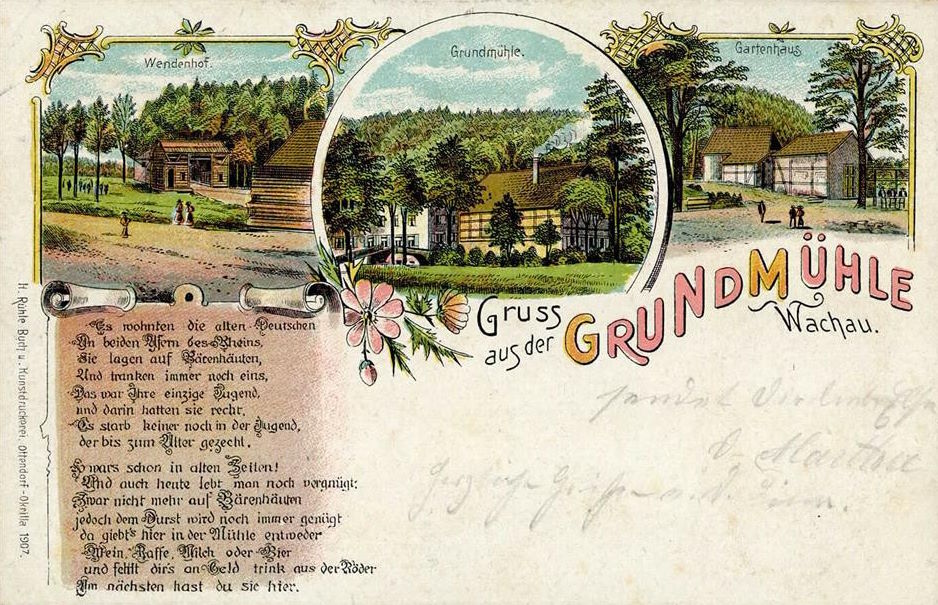 Wendenhof.
Grundmühle.
Gartenhaus
Gruss
aus der GRUNDMÜHLE
Wachau.
Es wohnten die alten Deutschen
An beiden Ufern des Rheins,
Sie lagen auf Bärenhäuten,
Und tranken immer noch eins,
Das war Ihre einzige Tugend,
und darin hatten sie recht,
Es starb keiner noch in der Jugend,
der bis zum Alter gezecht.
So wars schon in alten Zeiten!
Und auch heute lebt man noch vergnügt:
Zwar nicht mehr auf Bärenhäuten
jedoch dem Durst wird noch immer genügt
da giebt's hier in der Mühle entweder
Wein, Kaffe, Milch oder Bier
und fehlt dir's an Geld trink aus der Röder
Am nächsten hast du sie hier.
H. Rühle Buch u. Kunstdruckerei, Ottendorf-Okrilla 1907.
sendet
Herzliche Grüße